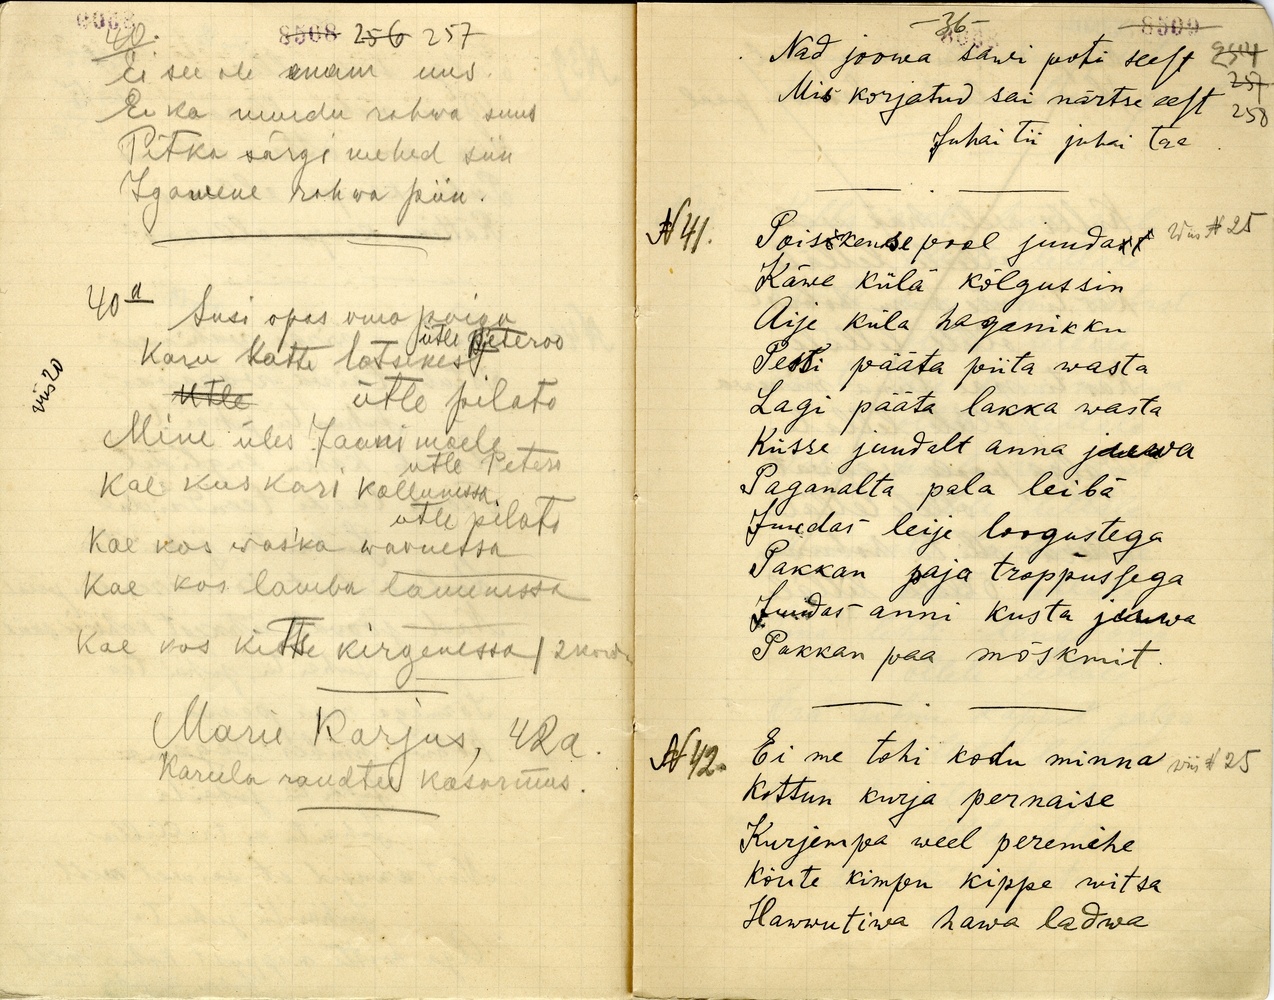 40.
8508 256 257
Ei see ole enam uus.
Ei ka muudu rahwa suus
Pitka särgi mehed siin
Igawene rahwa piin.
40a
Susi opas oma poigu
ütle Peteroo
Karu katte latsekesi
ütle ütle pilato
Mine üles Jaani mäele
ütle Petero
Kae kus kari kallunessa
ütle pilato
Kae kos waska waonessa
Kae kos lamba lamenessa
Kae kos kitse kirgenessa / 2 korda
viis 20
Marie Karjus, 42a.
Karula raudtee kasarmus.
-36-
8509
Nad joowa sawi poti seest
257
258
Mis korjatud sai närtse eest
Juhai tii juhai tae.
N 41.
Poisikense pool juuda
viis N 25
Käwe külä kõlgussin
Aije küla haganikku
Pesti pääta piita wasta
Lagi pääta lakka wasta
Küsse juudalt anna juuwa
Paganalta pala leibä
Juudas leije loogustega
Pakkan paja troppussega
Juudas anni kusta juuwa
Pakkan paa mõskmit.
N 42.
Ei me tohi kodu minna
viis N 25
Kottun kurja pernaise
Kurjempa weel peremihe
Köüte kimpu kippe witsa
Hawwutiwa hawa ladwa